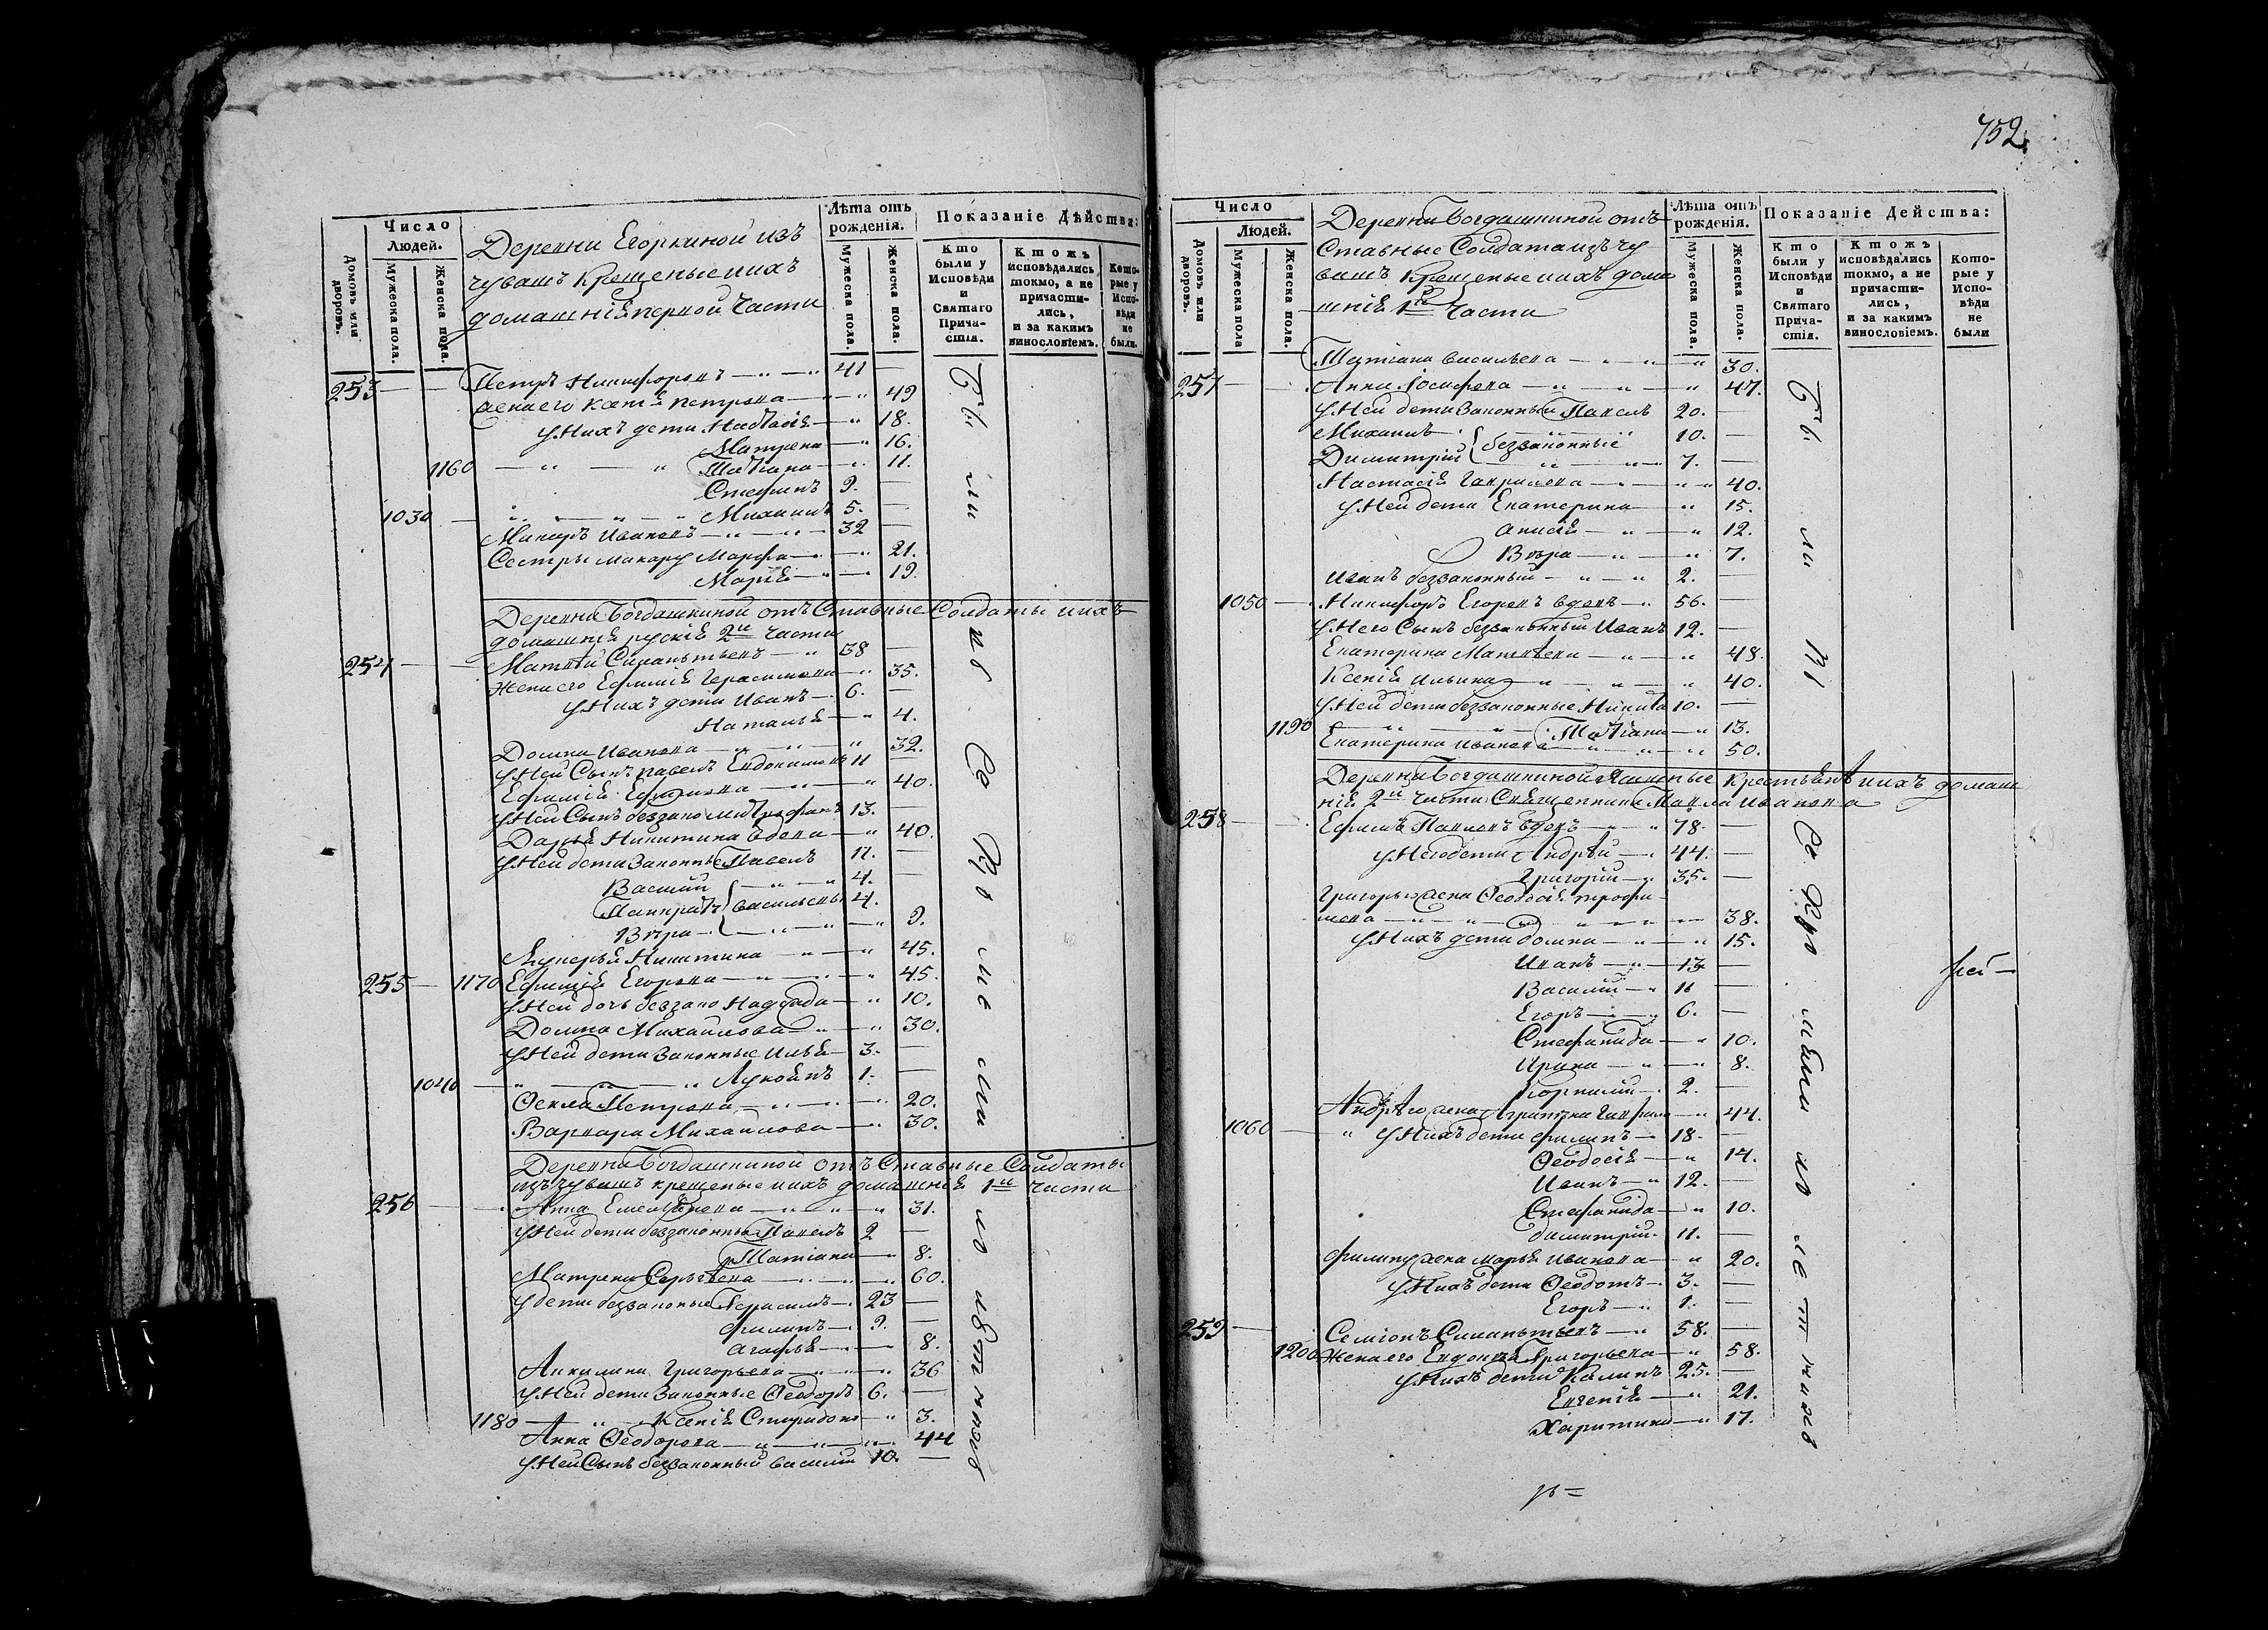 Число
Людей.
Домовъ или дворовъ.
Мужеска пола.
Женска пола.
Деревни Егоркиной изъ
чувашъ крещеные ихъ
домашнія первой части
Лѣта отъ
рожденія.
Мужеска пола.
Женска пола.
Показаніе Дѣйства:
Кто
были у
Исповѣди
и
Святаго
Прича-
стія.
Ктожъ
исповѣдались
токмо, а не
причасти-
лись,
и за какимъ
винословіемъ.
Кото-
рые у
Испо-
вѣди
не
были.
253 Петръ Никифоровъ 41
жена его Петрова 49
У Нихъ дети Настасія 18.
Матрена 16.
1160 Татіана 11.
Стефанъ 9.
1030 Михаилъ 5.
Макаръ Ивановъ 32
Сестры Макару Марфа 21.
Марія 19.
Деревни Богдашкиной отъ Ставные Солдаты ихъ
домашнія рускія 2й части
254 38
Жена его Ефимія Герасимова 35.
У Нихъ дети Иванъ 6.
Наталья 4.
Домна Иванова 32.
У Ней Сынъ Павелъ Евдокимовъ 11
Ефимія 40.
У Ней Сынъ беззако Митрофанъ 13.
Дарья Никитина вдова 40.
У Ней дети Законные Павелъ 11.
Василій 4.
Панкратъ Васильевы 4.
Вѣра 9.
Лукерья Никитина 45.
255 1170 Ефимія Егорова 45.
У Ней дочь беззако 10.
Домна Михайлова 30.
У Ней дети Законные Илья 3.
1040 1.
Фекла Петрова 20.
Варвара Михайлова 30.
Деревни Богдашкиной отъ Ставные Солдаты
изъ чувашъ крещеные ихъ домашнія 1й части
256 Анна 31.
У Ней дети беззаконны Павелъ 2
Татіана 8.
Матрена Сергѣева 60.
У дети беззаконые Герасимъ 23
Филипъ 9.
Агафья 8.
Акилина Григорьева 36
У Ней дети Законные Ѳеодоръ 6.
1180 Ксенія 3.
Анна Ѳеодорова 44
У Ней Сынъ беззаконный Василій 10.
752.
Число
Людей.
Домовъ или дворовъ.
Мужеска пола
Женска пола.
Деревни Богдашкиной отъ
Ставные Солдата изъ чу
вашъ крещеные ихъ дома
шнія 1й Части
Лѣта отъ
рожденія.
Мужеска пола.
Женска пола.
Показаніе Действа:
Кто
были у
Исповѣди
и
Святаго
Прича-
стія.
Ктожъ
исповѣдались
токмо, а не
причасти-
лись,
и за какимъ
винословіемъ.
Кото-
рые у
Испо-
вѣди
не
были
Татіана Васильева 30.
257 Анна Іосифова 47.
У Ней дети Законный Павелъ 20.
Михаилъ 10.
Димитрій беззаконные 7.
Настасія Гаврилова 40.
У Ней дети Екатерина 15.
Анисія 12.
Вѣра 7.
Иванъ беззаконный 2.
1050 Никифоръ Егоровъ вдовъ 56.
У Него Сынъ беззаконный Иванъ 12.
Екатерина Матвѣева 48.
Ксенія Ильина 40.
У Ней дети беззаконные Никита 10.
1190 Татіана 13.
Екатерина Иванова 50.
Деревни Богдашкиной Яшные крестьянѣ ихъ домаш
нія 2й части Священника Павла Иванова
258 Ефимъ вдовъ 78.
У Него дети Андрѣй 44.
Григорій 35.
Григорью жена Ѳеодосія трофи
мова 38.
У Нихъ дети Домна 15.
Иванъ 13.
Василій 11
Егоръ 6.
Стефанида 10.
Ирина 8.
Корнилій 2.
Андрѣю жена 44.
1060 У Нихъ дети Филипъ 18.
Ѳеодосія 14.
Иванъ 12.
Стефанида 10.
Димитрій 11.
Филипу жена Марья Иванова 20.
У Нихъ дети Ѳеодотъ 3.
Егоръ 1.
259 Семіонъ 58.
1200 Жена его Евдокія Григорьева 58.
У Нихъ дети 25.
Евгенія 21.
Харитина 17.